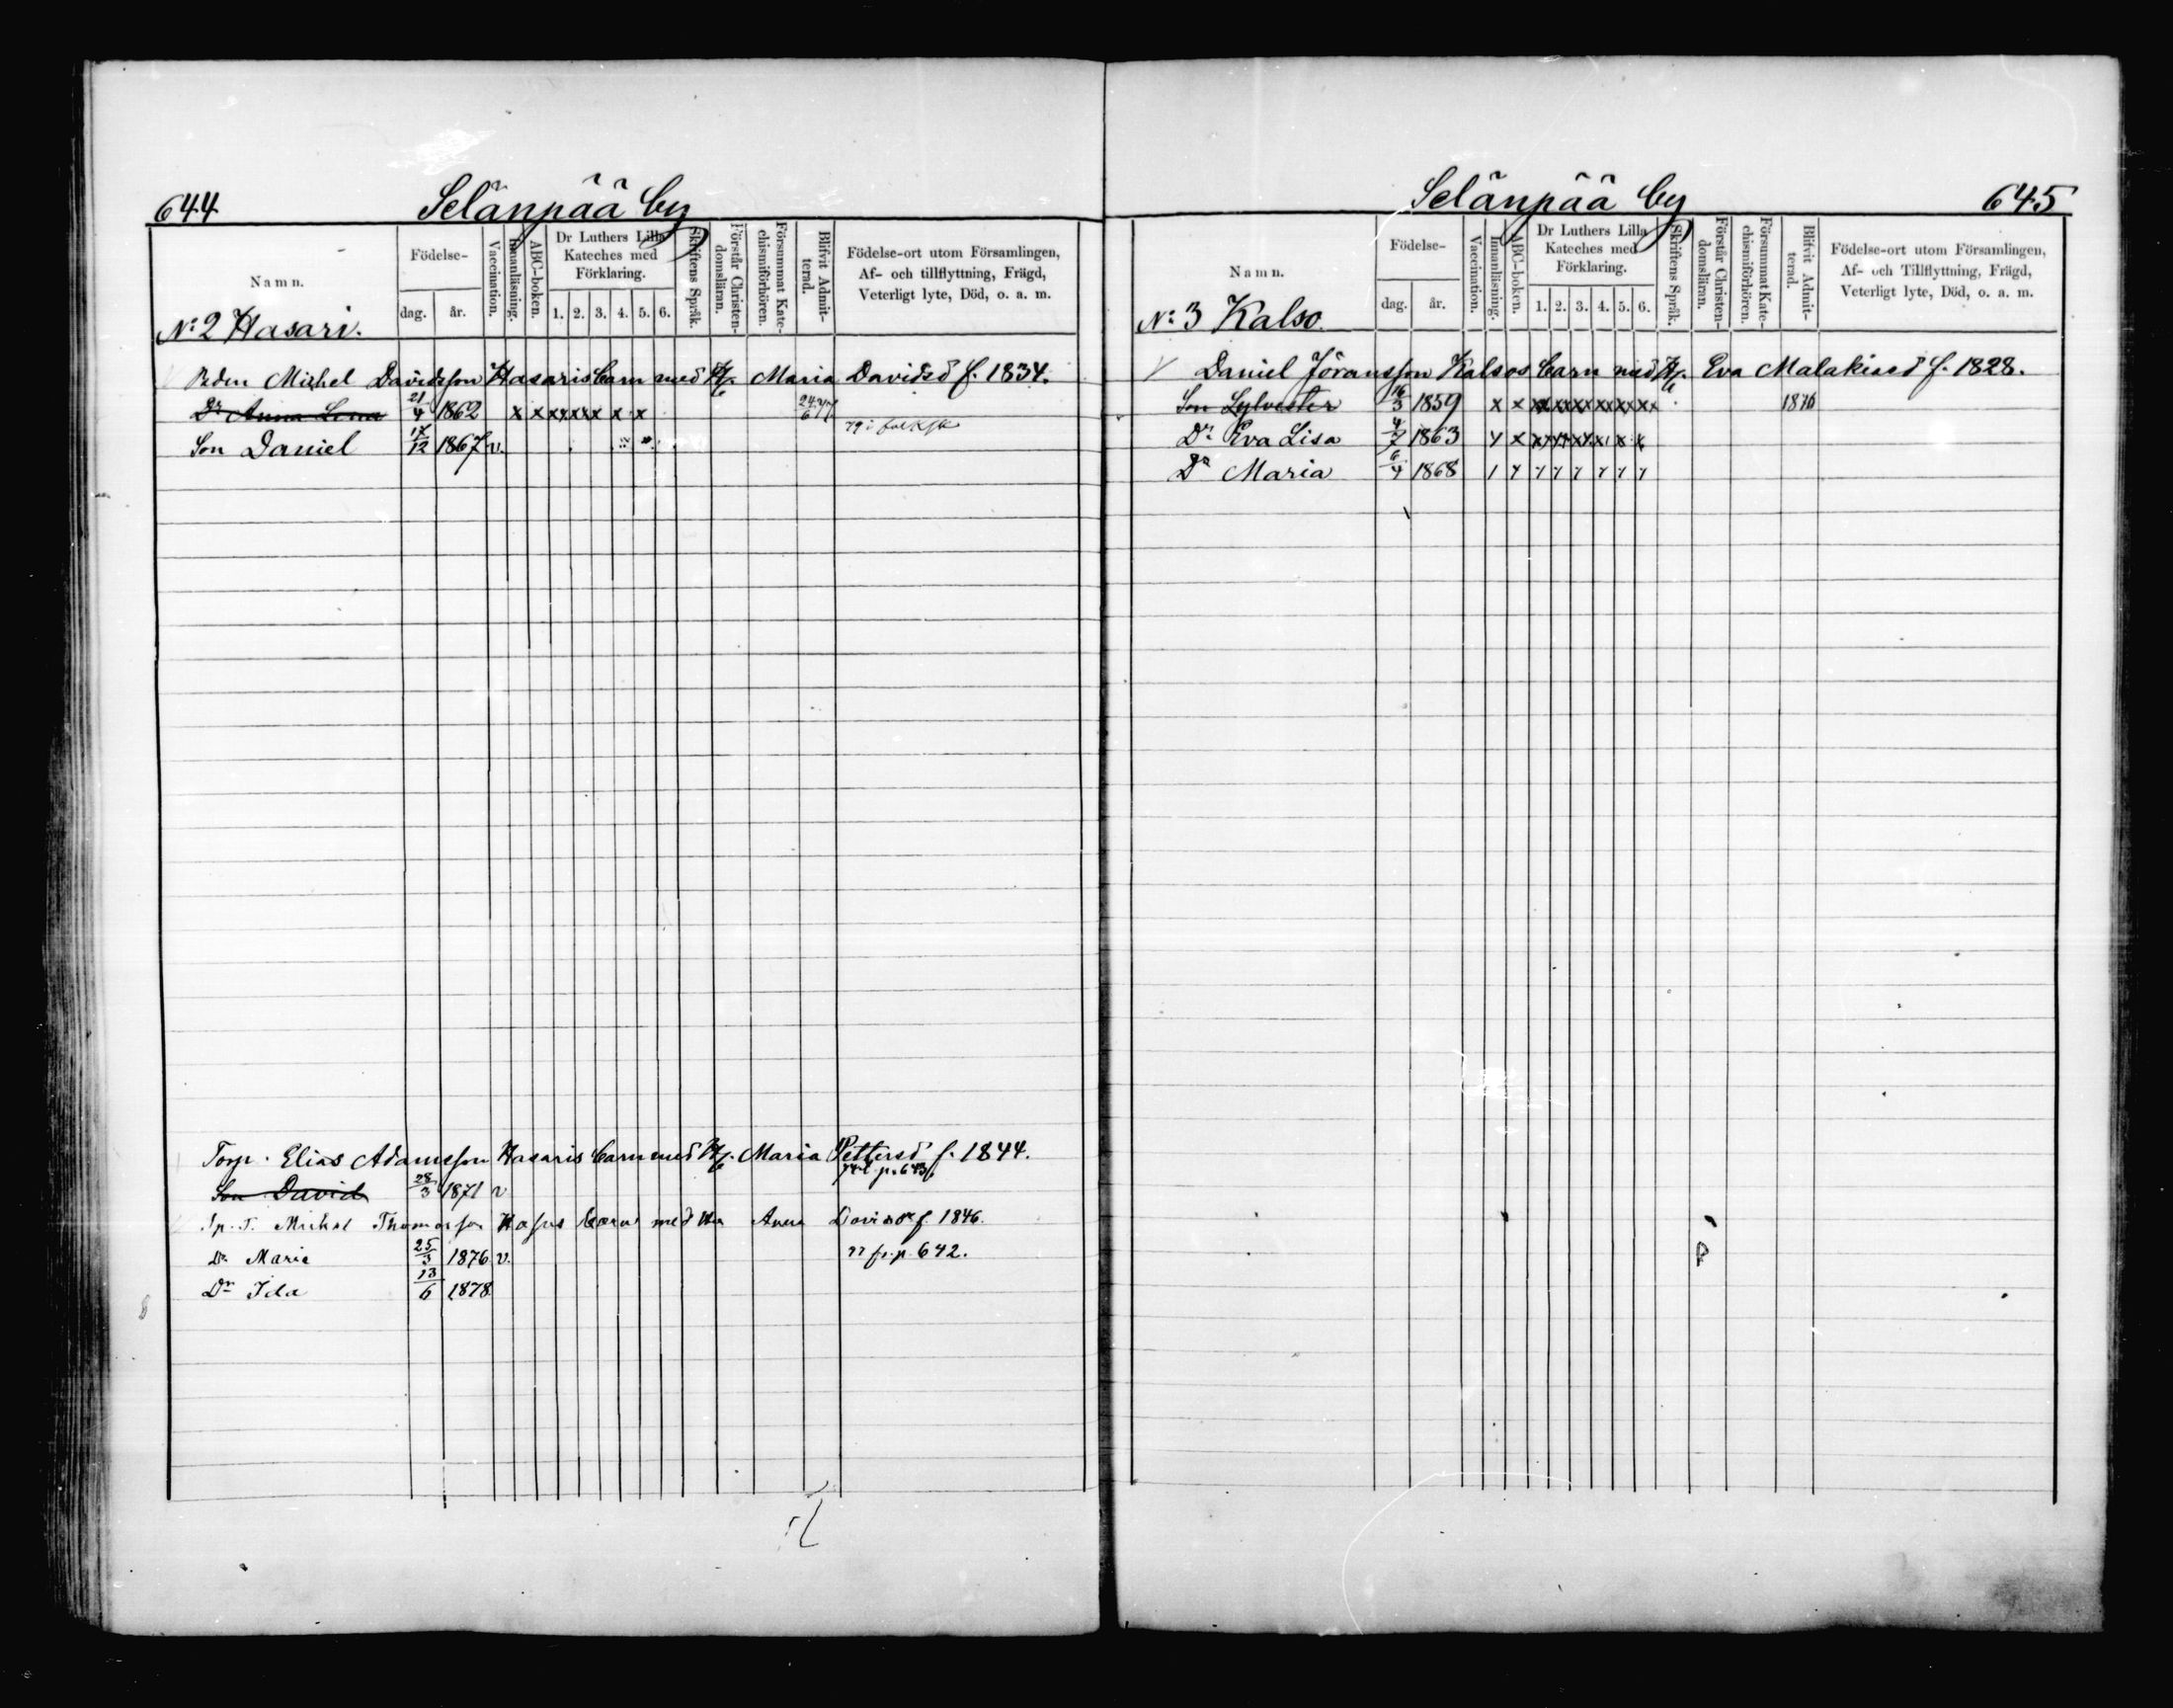 644 Selänpää by
Namn. Födelse- dag. år. Vaccination. Innanläsning. ABC-boken. Dr Luthers Lilla Kateches med Förklaring. 1. 2. 3. 4. 5. 6. Skriftens Språk. Förstår Christendomsläran. Försummat Katechismiförhören. Blifvit Admitterad. Födelse-ort utom Församlingen, Af- och tillflyttning, Frägd, Veterligt lyte, Död, o. a. m.
No 2 Hasari.
Michel Davidsson Hasaris barn med H. Maria Davidsd f. 1834.
Dr Anna Lena 21/4 1862 x x x x x x x x 24/6
79 i folksk
Son Daniel 17/12 1867 v.
Torp. Elias Adamsson Hasaris barn med H. Maria Pettersd f. 1844.
p. 643
Son David 28/3 1871 v
Michel Thomasson barn med Anna Davidsdr f. 1846.
Dr Maria 25/3 1876 v. 77 fr. p. 642.
Dr Ida 13/6 1878
Selänpää by 645
Namn. Födelse- dag. år. Vaccination. Innanläsning. ABC-boken. Dr Luthers Lilla Kateches med Förklaring. 1. 2. 3. 4. 5. 6. Skriftens Språk. Förstår Christendomsläran. Försummat Katechismiförhören. Blifvit Admitterad. Födelse-ort utom Församlingen, Af- och Tillflyttning, Frägd, Veterligt lyte, Död, o. a. m.
No 3 Kalso.
Daniel Jöransson Kalsos barn med H. Eva Malakiasd f. 1828.
Son Sylvester 16/3 1859 x x x x x x x x 1876
Dr Eva Lisa 4/7 1863 x x x x x x x x
Dr Maria 6/4 1868